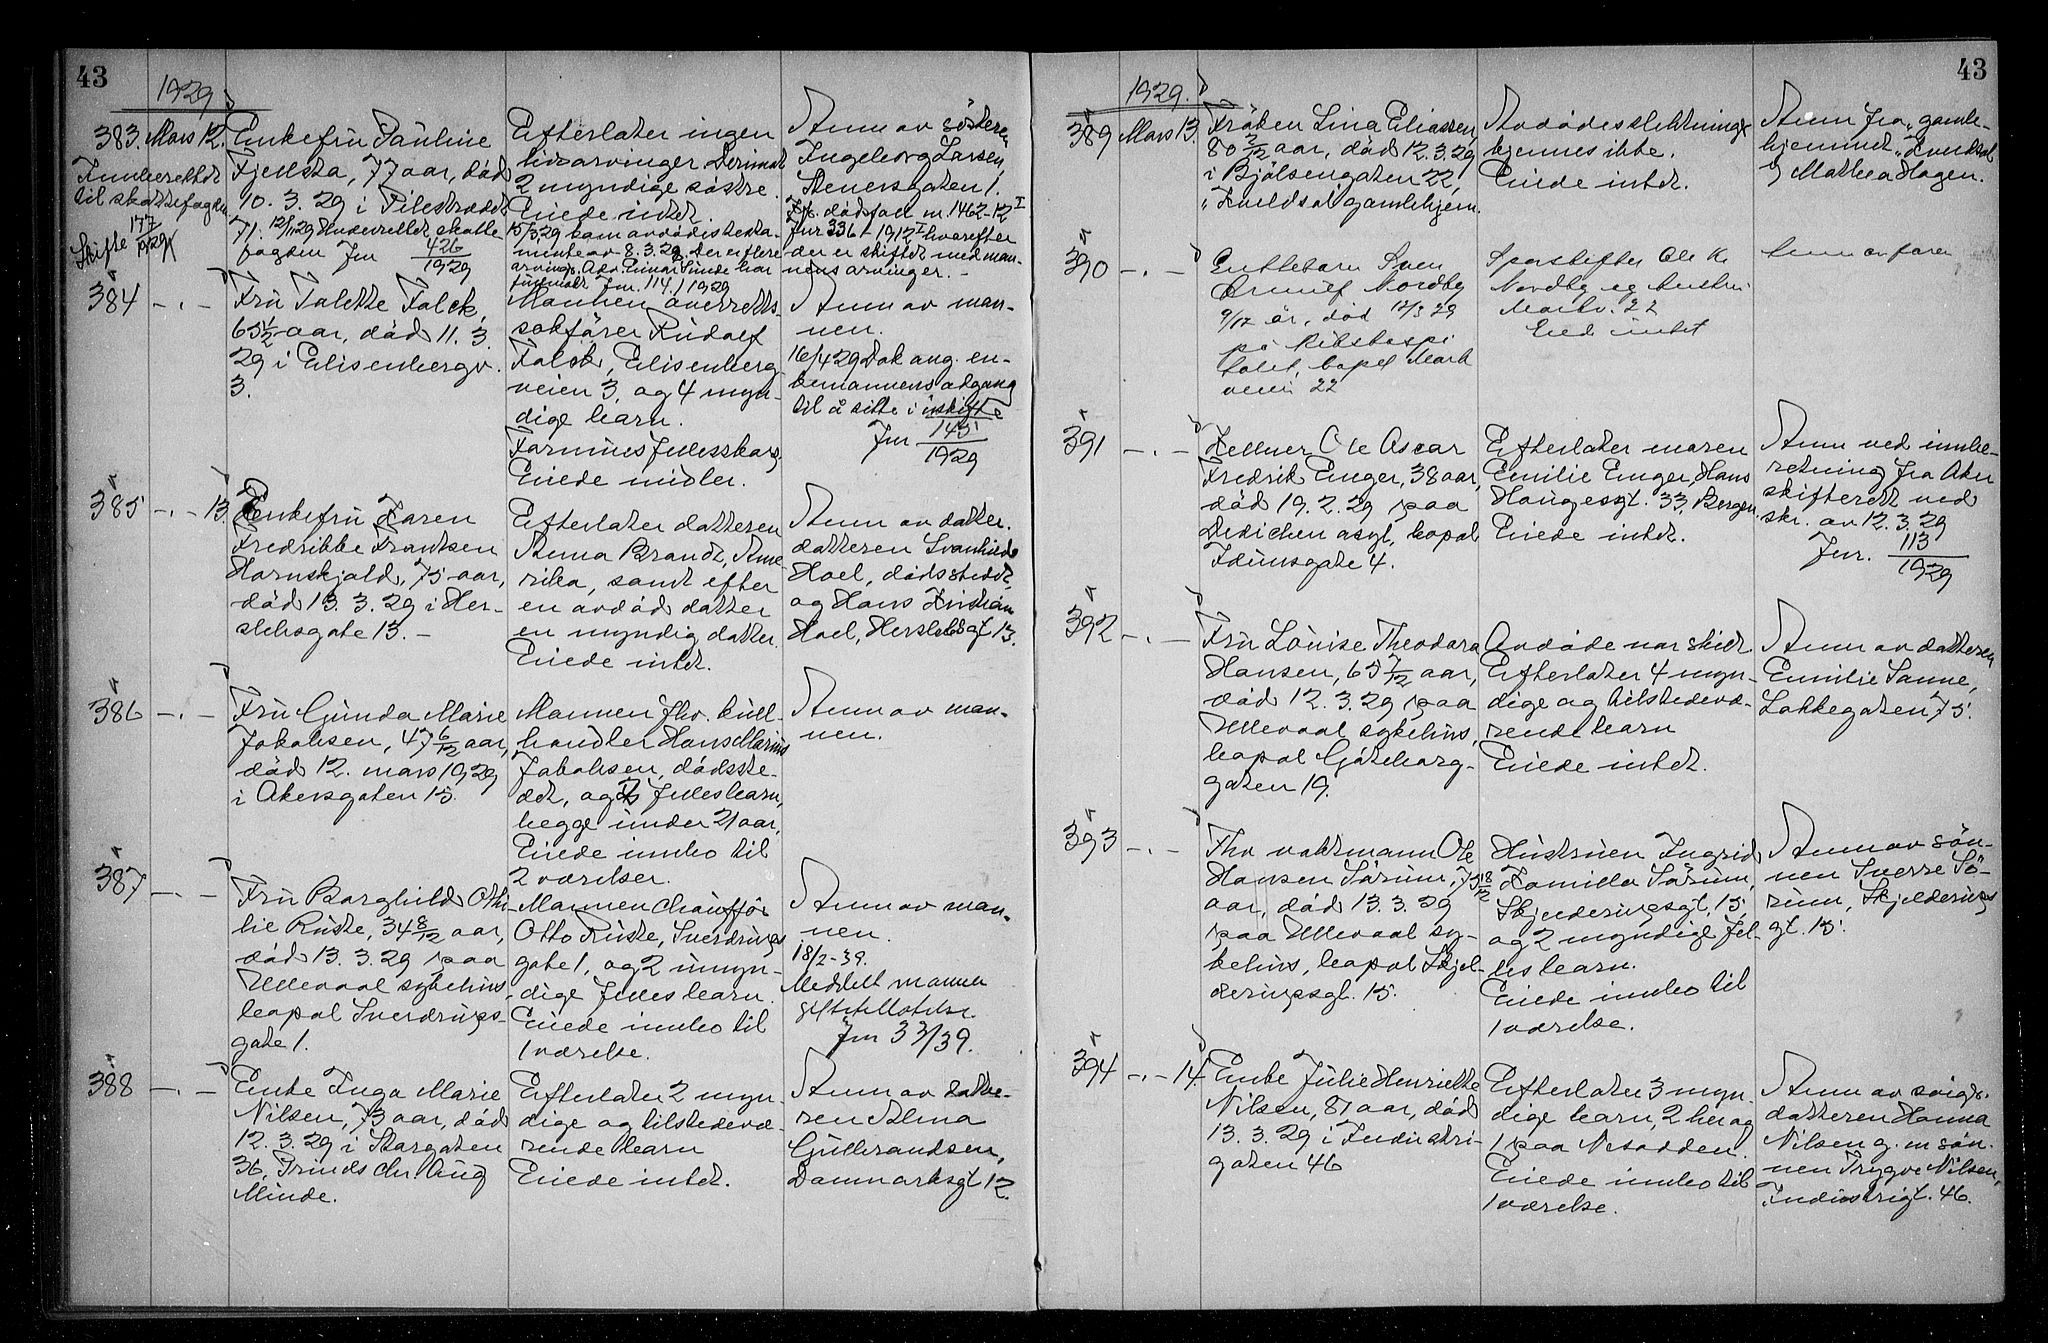 43
1929
383. Mars 12. Enkefru Pauline
Fjellsta, 77 aar, död
10. 3. 29 i Pilestrædet
71. 12/11 29 Underrettet skatte-
fogden Jnr 426/1929
Innberettet
til skattefogden
Skifte 177/1929
Efterlater ingen
livsarvinger derimot
2 myndige söstre.
Eiede intet.
15/3 29 kom avdödes testa-
mente av 8. 3. 29. Der er flere
arvinger. Adv. Einar Sinde har
Jnr. 114 / 1929
Anm av sösteren
Ingeborg Larsen,
Stenersgaten 1.
Jfr. dödsfall nr. 1462-12 I
Jnr 336 - 1912 I hvorefter
der er skiftet med man-
nens arvinger. -
384 -.- Fru Valette Falck,
65 1/2 aar, död 11. 3.
29 i Elisenbergv.
3.
Mannen overretts-
sakförer Rudolf
Falck, Elisenberg-
veien 3, og 4 myn-
dige barn.
Formues fellesskap
Eiede midler.
Anm av man-
nen.
16/4 29 Dok ang. en-
kemannens adgang
til å sitte i uskifte
Jnr 145/1929
385 -.- 13. Enkefru Karen
Fredrikke Frantsen
Hornskjold, 75 aar,
död 13. 3. 29 i Her-
slebsgate 13. -
Efterlater datteren
Anna Brandt, Ame-
rika, samt efter
en avdöd datter
en myndig datter.
Eiede intet.
Anm av datter-
datteren Svanhild
Hoel, dödsstedet,
og Hans Kristian
Hoel, Herslebsgt 13.
386 -.- Fru Gunda Marie
Jakobsen, 47 6/12 aar,
död 12. mars 1929
i Akersgaten 15.
Mannen fhv. kull-
handler Hans Marius
Jakobsen, dödsste-
det, og felles barn,
begge under 21 aar.
Eiede innbo til
2 værelser.
Anm av man-
nen.
387 -.- Fru Borghild Othi-
lie Ruste, 34 8/12 aar,
död 13. 3. 29 paa
Ullevaal sykehus,
bopæl Sverdrups-
gate 1.
Mannen chaufför
Otto Ruste, Sverdrups
gate 1, og 2 umyn-
dige felles barn.
Eiede innbo til
1 værelse.
Anm av man-
nen.
18/2 - 39.
Meddelt mannen
giftetillatelse.
Jnr 33/39.
388 -.- Enke Inga Marie
Nilsen, 73 aar, död
12. 3. 29 i Storgaten
36, Prinds Chr. Aug
Minde.
Efterlater 2 myn-
dige og tilstedevæ-
rende barn
Eiede intet.
Anm av datte-
ren Alma
Gulbrandsen,
Danmarksgt 12.
43
1929.
389 Mars 13. Fröken Lina Eliassen,
80 2/12 aar, död 12. 3. 29
i Bjölsengaten 22,
"Kveldsol" gamlehjem.
Avdödes slektninger
kjennes ikke.
Eiede intet.
Anm fra "gamle-
hjemmet" Kveldsol
v/ Mathea Hagen.
390 -.- Enkebarn Sven
Ornulf Nordby
9/12 år, död 12/3 29
på Rikshospi
talet, bopel Mark
veien 22
Nordby og hustru
Markv. 22
Eied intet
Anm av faren
391 -.- Kellner Ole Oscar
Fredrik Enger, 38 aar,
död 19. 2. 29 paa
Dedichen asyl, bopæl
Idunsgate 4.
Efterlater moren
Emilie Enger, Hans
Haugesgt. 33, Bergen.
Eiede intet.
Anm ved innbe-
retning fra Aker
skifterett ved
skr. av 12. 3. 29
Jnr. 113/1929
392 -.- Fru Louise Theodora
Hansen, 65 7/12 aar,
död 12. 3. 29 paa
Ullevaal sykehus,
bopæl Göteborg-
gaten 19.
Avdöde var skilt.
Efterlater 4 myn-
dige og tilstedevæ-
rende barn
Eiede intet.
Anm av datteren
Emilie Sanne,
Lakkegaten 75.
393 -.- Fhv vaktmann Ole
Hansen Sörum, 75 8/12
aar, död 13. 3. 29
paa Ullevaal sy-
kehus, bopæl Skjel-
derupsgt. 15.
Hustruen Ingrid
Kamilla Sörum,
Skjelderupsgt. 15
og 2 myndige fel-
les barn.
Eiede innbo til
1 værelse.
Anm av sön-
nen Sverre Sö-
rum, Skjelderups
gt. 15.
394 -.- 14. Enke Julie Henriette
Nilsen, 81 aar, död
13. 3. 29 i Industri-
gaten 46
Efterlater 3 myn-
dige barn, 2 her og
1 paa Nesodden.
Eiede innbo til
1 værelse.
Anm av sviger-
datteren Hanna
Nilsen g. m sön-
nen Trygve Nilsen,
Industrigt. 46.